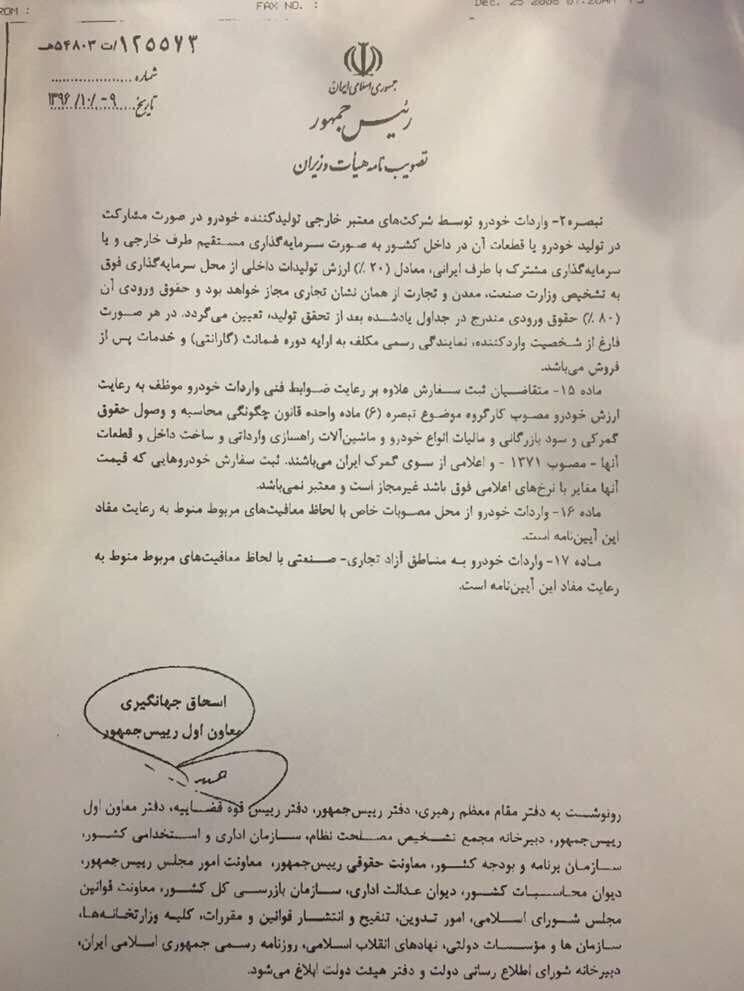 ROM :
FAX NO. :
Dec. 25 2006 07:20AM P3
۱۲۵۵۷۳/ت۵۴۸۰۳هـ
شماره
تاریخ ۱۳۹۶/۱۰/۰۹
جمهوری اسلامی ایران
رئیس جمهور
تصویب نامه هیأت وزیران
تبصره۲- واردات خودرو توسط شرکت‌های معتبر خارجی تولیدکننده خودرو در صورت مشارکت
در تولید خودرو یا قطعات آن در داخل کشور به صورت سرمایه‌گذاری مستقیم طرف خارجی و یا
سرمایه‌گذاری مشترک با طرف ایرانی، معادل (۲۰ ٪) ارزش تولیدات داخلی از محل سرمایه‌گذاری فوق
به تشخیص وزارت صنعت، معدن و تجارت از همان نشان تجاری مجاز خواهد بود و حقوق ورودی آن
(۸۰ ٪) حقوق ورودی مندرج در جداول یادشده بعد از تحقق تولید، تعیین می‌گردد. در هر صورت
فارغ از شخصیت واردکننده، نمایندگی رسمی مکلف به ارایه دوره ضمانت (گارانتی) و خدمات پس از
فروش می‌باشد.
ماده ۱۵- متقاضیان ثبت سفارش علاوه بر رعایت ضوابط فنی واردات خودرو موظف به رعایت
ارزش خودرو مصوب کارگروه موضوع تبصره (۶) ماده واحده قانون چگونگی محاسبه و وصول حقوق
گمرکی و سود بازرگانی و مالیات انواع خودرو و ماشین‌آلات راهسازی وارداتی و ساخت داخل و قطعات
آنها - مصوب ۱۳۷۱ - و اعلامی از سوی گمرک ایران می‌باشند. ثبت سفارش خودروهایی که قیمت
آنها مغایر با نرخ‌های اعلامی فوق باشد غیرمجاز است و معتبر نمی‌باشد.
ماده ۱۶- واردات خودرو از محل مصوبات خاص با لحاظ معافیت‌های مربوط منوط به رعایت مفاد
این آیین‌نامه است.
ماده ۱۷- واردات خودرو به مناطق آزاد تجاری- صنعتی با لحاظ معافیت‌های مربوط منوط به
رعایت مفاد این آیین‌نامه است.
اسحاق جهانگیری
معاون اول رییس‌جمهور
رونوشت به دفتر مقام معظم رهبری، دفتر رییس‌جمهور، دفتر رییس قوه قضاییه، دفتر معاون اول
رییس‌جمهور، دبیرخانه مجمع تشخیص مصلحت نظام، سازمان اداری و استخدامی کشور،
سازمان برنامه و بودجه کشور، معاونت حقوقی رییس‌جمهور، معاونت امور مجلس رییس‌جمهور،
دیوان محاسبات کشور، دیوان عدالت اداری، سازمان بازرسی کل کشور، معاونت قوانین
مجلس شورای اسلامی، امور تدوین، تنقیح و انتشار قوانین و مقررات، کلیه وزارتخانه‌ها،
سازمان ها و مؤسسات دولتی، نهادهای انقلاب اسلامی، روزنامه رسمی جمهوری اسلامی ایران،
دبیرخانه شورای اطلاع رسانی دولت و دفتر هیئت دولت ابلاغ می‌شود.